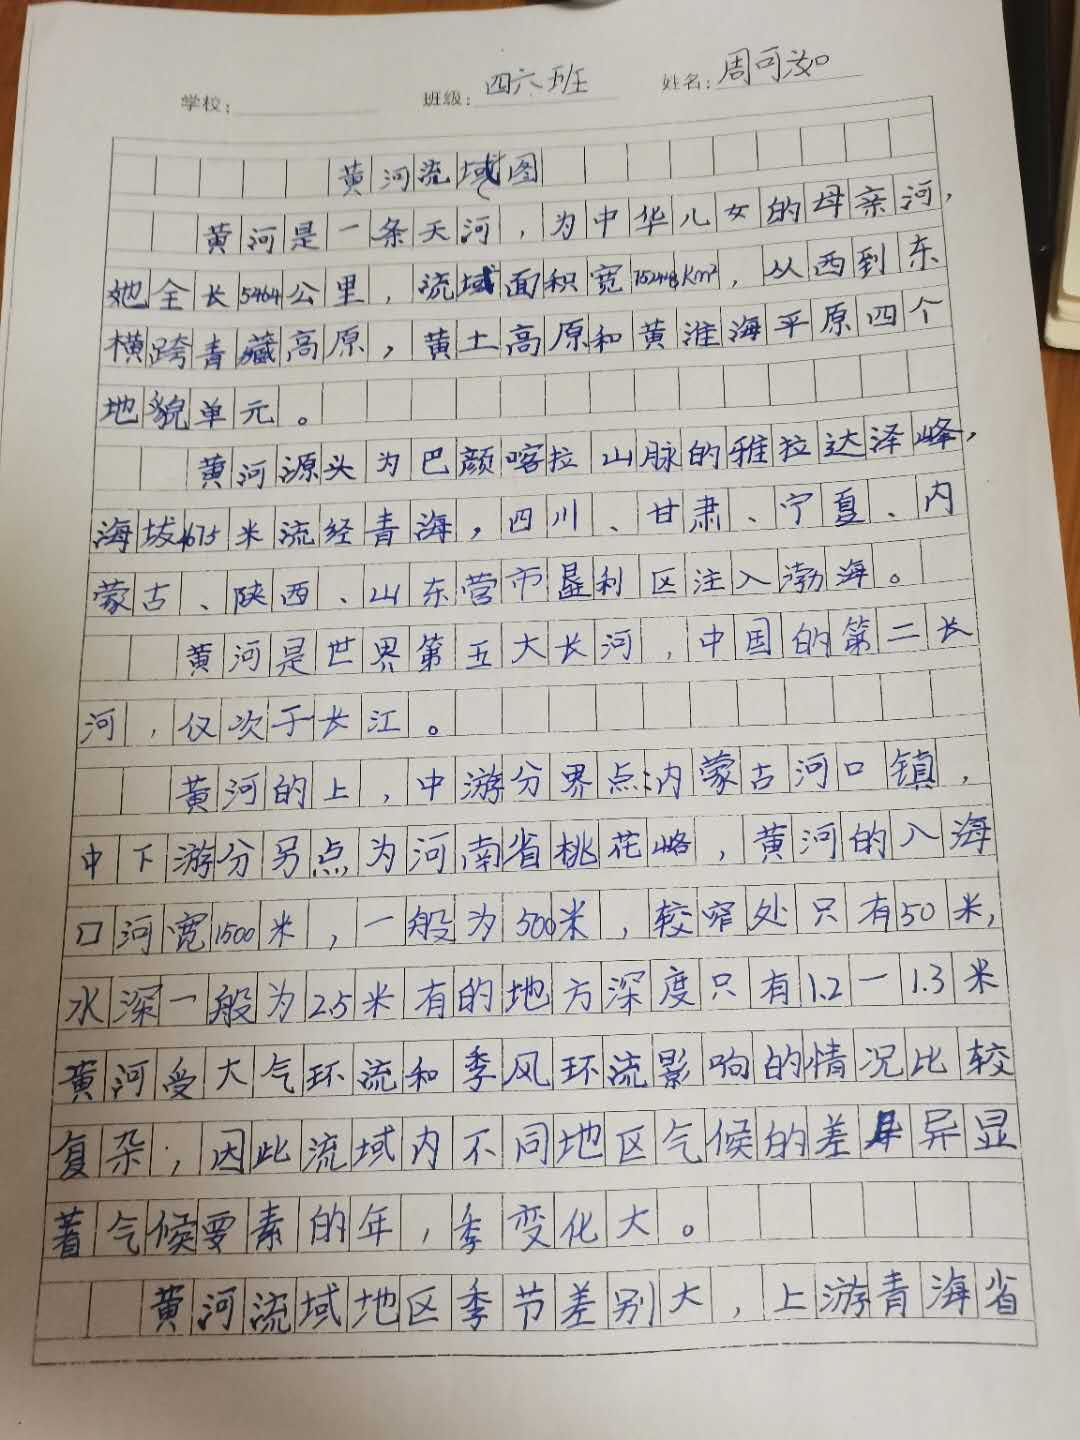 学校： 班级：四六班 姓名：周可汝
黄河流域图
黄河是一条天河，为中华儿女的母亲河，
她全长5464公里，流域面积宽752443Km²，从西到东
横跨青藏高原，黄土高原和黄淮海平原四个
地貌单元。
黄河源头为巴颜喀拉山脉的雅拉达泽峰，
海拔4675米流经青海，四川、甘肃、宁夏、内
蒙古、陕西、山东营市垦利区注入渤海。
黄河是世界第五大长河，中国的第二长
河，仅次于长江。
黄河的上，中游分界点内蒙古河口镇，
中下游分另点为河南省桃花峪，黄河的入海
口河宽1500米，一般为500米，较窄处只有50米，
水深一般为2.5米有的地方深度只有1.2一1.3米
黄河受大气环流和季风环流影响的情况比较
复杂；因此流域内不同地区气候的差异显
著气候要素的年，季变化大。
黄河流域地区季节差别大，上游青海省